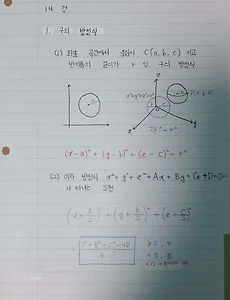 14 강.
1. 구의 방정식
(1) 좌표 공간에서 중심이 C(a, b, c) 이고
반지름의 길이가 r 인 구의 방정식
(x-a)² + (y-b)² + (z-c)² = r²
(2) 이차 방정식 x²+y²+z²+Ax+By+Cz+D=0이
나타내는 도형
(x+A/2)² + (y+B/2)² + (z+C/2)²
= A²+B²+C²-4D / 4
> 0 . 구
= 0 . 점